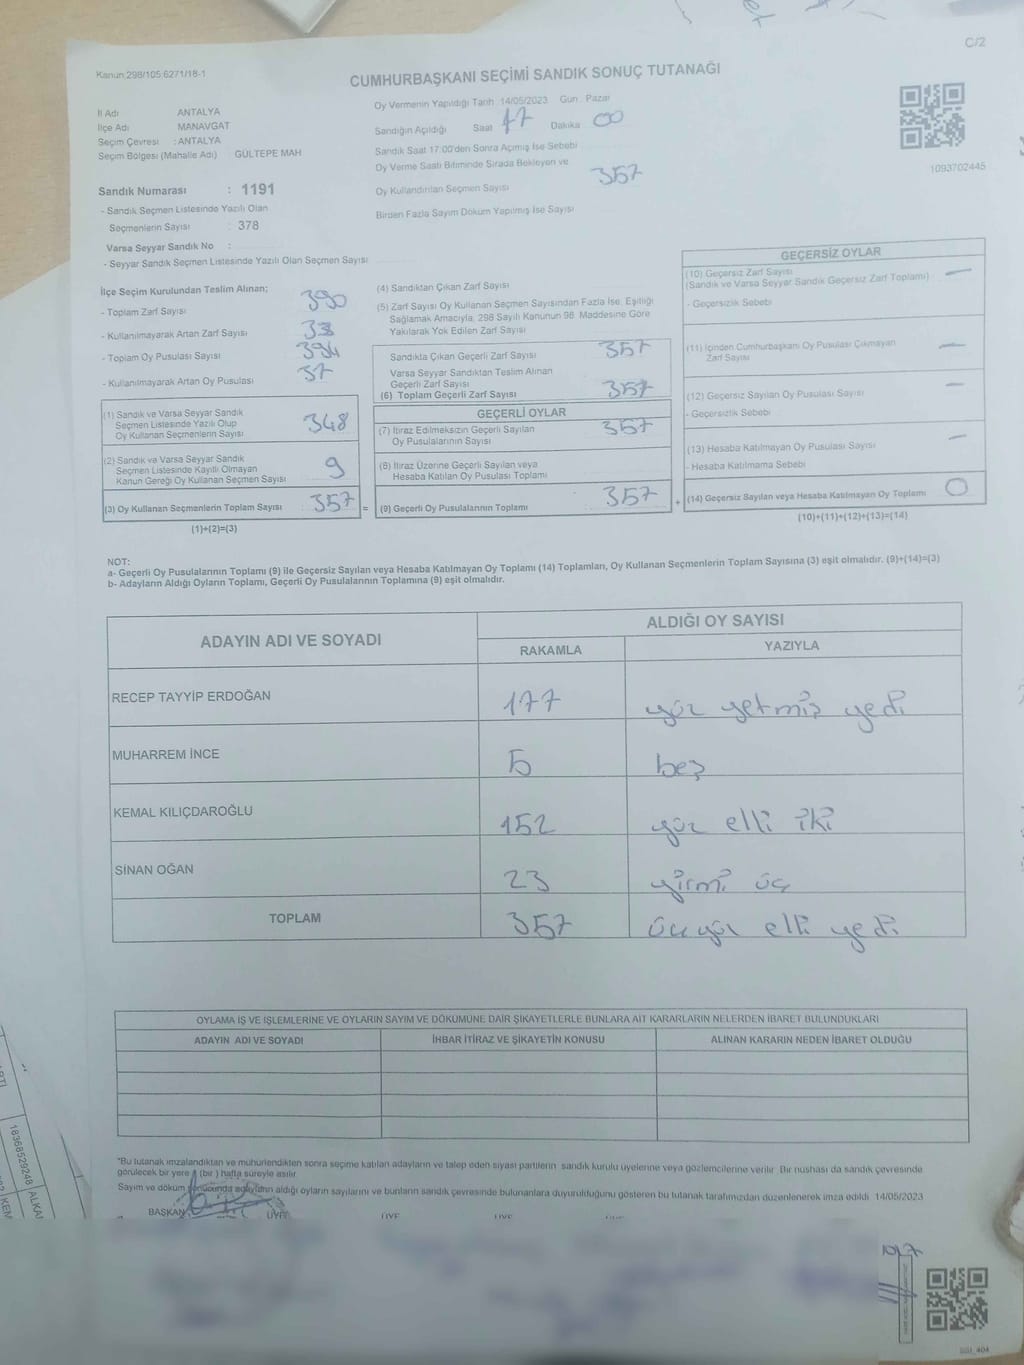 C/2
Kanun:298/105.6271/18-1
CUMHURBAŞKANI SEÇİMİ SANDIK SONUÇ TUTANAĞI
İl Adı ANTALYA
İlçe Adı MANAVGAT
Seçim Çevresi : ANTALYA
Seçim Bölgesi (Mahalle Adı) : GÜLTEPE MAH
Sandık Numarası : 1191
- Sandık Seçmen Listesinde Yazılı Olan
Seçmenlerin Sayısı : 378
Varsa Seyyar Sandık No :
- Seyyar Sandık Seçmen Listesinde Yazılı Olan Seçmen Sayısı
Oy Vermenin Yapıldığı Tarih 14/05/2023 Gün : Pazar
Sandığın Açıldığı Saat 17 Dakika 00
Sandık Saat 17:00'den Sonra Açımış İse Sebebi
Oy Verme Saati Bitiminde Sırada Bekleyen ve
Oy Kullandırılan Seçmen Sayısı 357
Birden Fazla Sayım Döküm Yapılmış İse Sayısı
1093702445
İlçe Seçim Kurulundan Teslim Alınan;
- Toplam Zarf Sayısı 390
- Kullanılmayarak Artan Zarf Sayısı 33
- Toplam Oy Pusulası Sayısı 394
- Kullanılmayarak Artan Oy Pusulası 37
(1) Sandık ve Varsa Seyyar Sandık
Seçmen Listesinde Yazılı Olup
Oy Kullanan Seçmenlerin Sayısı 348
(2) Sandık ve Varsa Seyyar Sandık
Seçmen Listesinde Kayıtlı Olmayan
Kanun Gereği Oy Kullanan Seçmen Sayısı 9
(3) Oy Kullanan Seçmenlerin Toplam Sayısı 357 =
(1)+(2)=(3)
(4) Sandıktan Çıkan Zarf Sayısı
(5) Zarf Sayısı Oy Kullanan Seçmen Sayısından Fazla İse, Eşitliği
Sağlamak Amacıyla, 298 Sayılı Kanunun 98. Maddesine Göre
Yakılarak Yok Edilen Zarf Sayısı
Sandıkta Çıkan Geçerli Zarf Sayısı 357
Varsa Seyyar Sandıktan Teslim Alınan
Geçerli Zarf Sayısı
(6) Toplam Geçerli Zarf Sayısı 357
GEÇERLİ OYLAR
(7) İtiraz Edilmeksizin Geçerli Sayılan
Oy Pusulalarının Sayısı 357
(8) İtiraz Üzerine Geçerli Sayılan veya
Hesaba Katılan Oy Pusulası Toplamı
(9) Geçerli Oy Pusulalarının Toplamı 357 +
GEÇERSİZ OYLAR
(10) Geçersiz Zarf Sayısı
(Sandık ve Varsa Seyyar Sandık Geçersiz Zarf Toplamı) —
- Geçersizlik Sebebi
(11) İçinden Cumhurbaşkanı Oy Pusulası Çıkmayan
Zarf Sayısı —
(12) Geçersiz Sayılan Oy Pusulası Sayısı —
- Geçersizlik Sebebi
(13) Hesaba Katılmayan Oy Pusulası Sayısı —
- Hesaba Katılmama Sebebi
(14) Geçersiz Sayılan veya Hesaba Katılmayan Oy Toplamı 0
(10)+(11)+(12)+(13)=(14)
NOT:
a- Geçerli Oy Pusulalarının Toplamı (9) ile Geçersiz Sayılan veya Hesaba Katılmayan Oy Toplamı (14) Toplamları, Oy Kullanan Seçmenlerin Toplam Sayısına (3) eşit olmalıdır. (9)+(14)=(3)
b- Adayların Aldığı Oyların Toplamı, Geçerli Oy Pusulalarının Toplamına (9) eşit olmalıdır.
ADAYIN ADI VE SOYADI ALDIĞI OY SAYISI
RAKAMLA YAZIYLA
RECEP TAYYİP ERDOĞAN 177 yüz yetmiş yedi
MUHARREM İNCE 5 beş
KEMAL KILIÇDAROĞLU 152 yüz elli iki
SİNAN OĞAN 23 yirmi üç
TOPLAM 357 üç yüz elli yedi
OYLAMA İŞ VE İŞLEMLERİNE VE OYLARIN SAYIM VE DÖKÜMÜNE DAİR ŞİKAYETLERLE BUNLARA AİT KARARLARIN NELERDEN İBARET BULUNDUKLARI
ADAYIN ADI VE SOYADI İHBAR İTİRAZ VE ŞİKAYETİN KONUSU ALINAN KARARIN NEDEN İBARET OLDUĞU
*Bu tutanak imzalandıktan ve mühürlendikten sonra seçime katılan adayların ve talep eden siyasi partilerin sandık kurulu üyelerine veya gözlemcilerine verilir. Bir nüshası da sandık çevresinde
görülecek bir yere 1 (bir) hafta süreyle asılır.
Sayım ve döküm sonucunda adayların aldığı oyların sayılarını ve bunların sandık çevresinde bulunanlara duyurulduğunu gösteren bu tutanak tarafımızdan düzenlenerek imza edildi. 14/05/2023
BAŞKAN ÜYE ÜYE ÜYE
18368529248